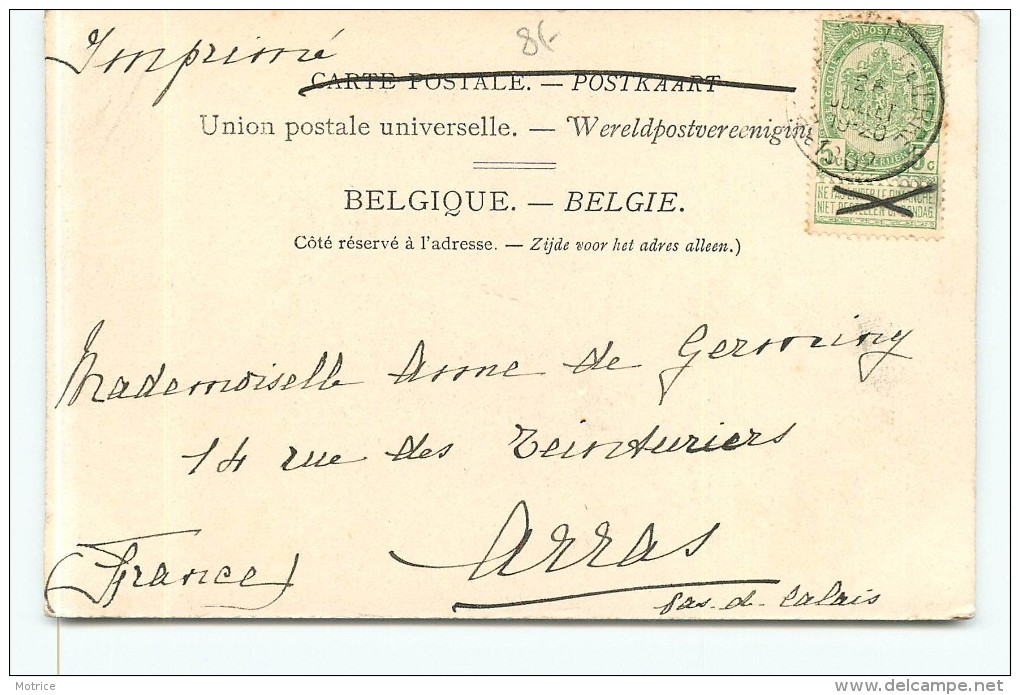 Imprimé
8f-
CARTE POSTALE. — POSTKAART
Union postale universelle. — Wereldpostvereeniging
BELGIQUE. — BELGIE.
Côté réservé à l'adresse. — Zijde voor het adres alleen.)
POSTES
5c
NE PAS LIVRER LE DIMANCHE
NIET BESTELLEN OP ZONDAG
Mademoiselle Anne de Germiny
14 rue des Teinturiers
Arras
(France)
Pas-de-Calais
Motrice
delcampe.net